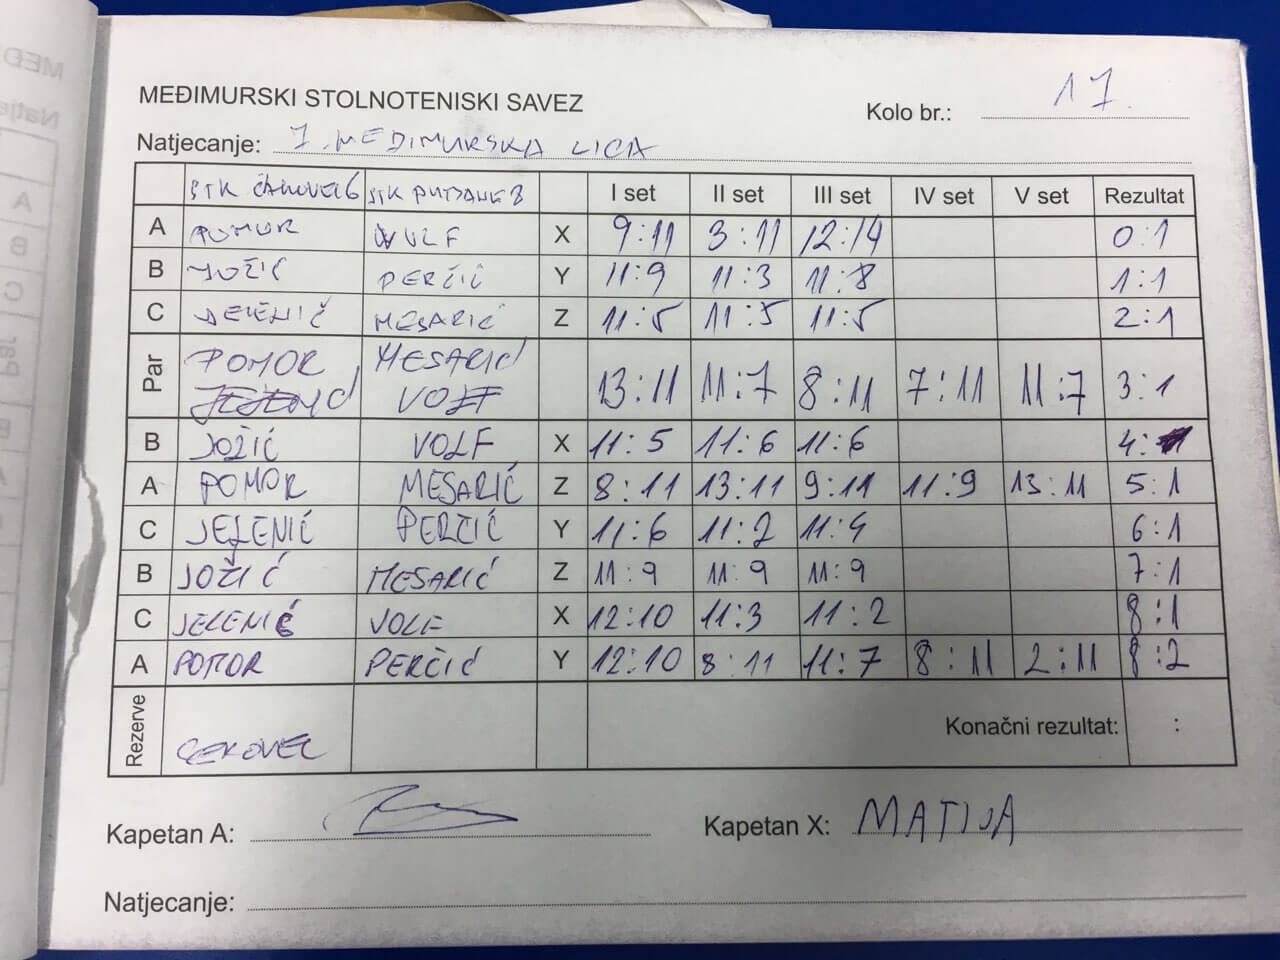 MEĐIMURSKI STOLNOTENISKI SAVEZ
Kolo br.: 17.
Natjecanje: 1. MEĐIMURSKA LIGA
STK ČAKOVEC 6 STK PUTJANE 8 I set II set III set IV set V set Rezultat
A POMOR WOLF X 9:11 3:11 12:14 0:1
B JOŽIĆ PERČIĆ Y 11:9 11:3 11:8 1:1
C JELENIĆ MESARIĆ Z 11:5 11:5 11:5 2:1
Par POMOR MESARIĆ 13:11 11:7 8:11 7:11 11:7 3:1
VOLF
B JOŽIĆ VOLF X 11:5 11:6 11:6 4:1
A POMOR MESARIĆ Z 8:11 13:11 9:11 11:9 13:11 5:1
C JELENIĆ PERČIĆ Y 11:6 11:2 11:4 6:1
B JOŽIĆ MESARIĆ Z 11:9 11:9 11:9 7:1
C JELENIĆ VOLF X 12:10 11:3 11:2 8:1
A POMOR PERČIĆ Y 12:10 8:11 11:7 8:11 2:11 8:2
Rezerve Konačni rezultat: :
Kapetan A: Kapetan X: MATIJA
Natjecanje: